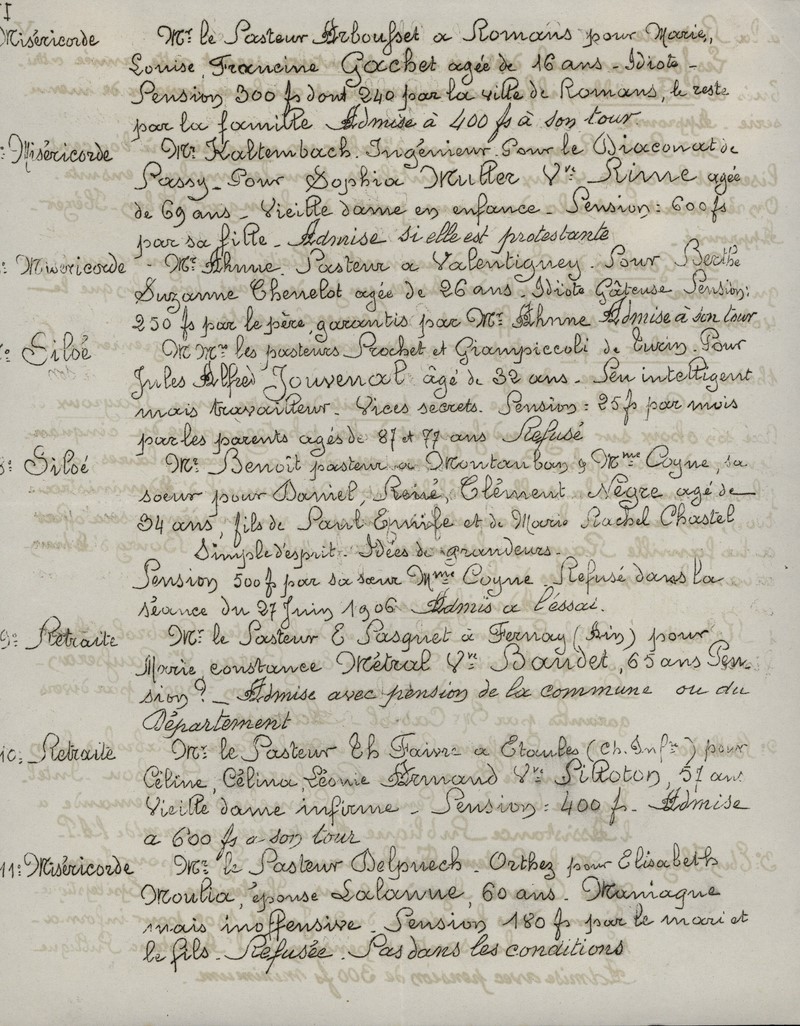 Miséricorde Mr. le Pasteur Arbousset a Romans pour Marie,
Louise, Francine Gachet agée de 16 ans - Idiote -
Pension 300 fs dont 240 par la ville de Romans, le reste
par la famille Admise à 400 fs à son tour
Miséricorde Mr. Kaltembach. Ingénieur. Pour le Diaconat de
Passy - Pour Sophia Muller Vve Rime agée
de 69 ans - Vieille dame en enfance - Pension: 600 fs
par sa fille - Admise si elle est protestante
Misericorde - Mr. Ahnne. Pasteur a Valentigney. Pour Berthe
Suzanne Thenelot agée de 26 ans. Idiote Gâteuse Pension:
250 fs par le père, garantis par Mr. Ahnne Admise à son tour
Siloé M Mrs les pasteurs Prochet et Giampiccoli de Turin. Pour
Jules Alfred Jouvenal âgé de 32 ans - Peu intelligent
mais travailleur - Vices secrets. Pension: 25 fs par mois
par les parents agés de 87 et 77 ans Refusé
Siloé Mr. Benoît pasteur a Montauban & Mme Coyne, sa
soeur pour Daniel, René, Clément Nègre agé de
34 ans, fils de Paul Emile et de Marie Rachel Chastel
Simple d'esprit. Idées de grandeurs -
Pension 500 f par sa sœur Mme Coyne. Refusé dans la
séance du 27 Juin 1906 Admis a l'éssai.
9º Retraite Mr. le Pasteur E Pasquet à Fernay (Ain) pour
Marie, constance Métral Vve Baudet, 65 ans Pen-
sion? - Admise avec pension de la commune ou du
Département
10: Retraite Mr. le Pasteur Th Faivre a Etaules (Ch. Infre) pour
Céline, Célina, Léonie Armand Vve Filloton, 57 ans
Vieille dame infirme - Pension: 400 f. Admise
a 600 fs a son tour
11: Miséricorde Mr. le Pasteur Delpuech - Orthez pour Elisabeth
Moulia, épouse Lalanne, 60 ans. Maniaque
mais inoffensive - Pension 180 fs par le mari et
le fils - Refusée. Pas dans les conditions